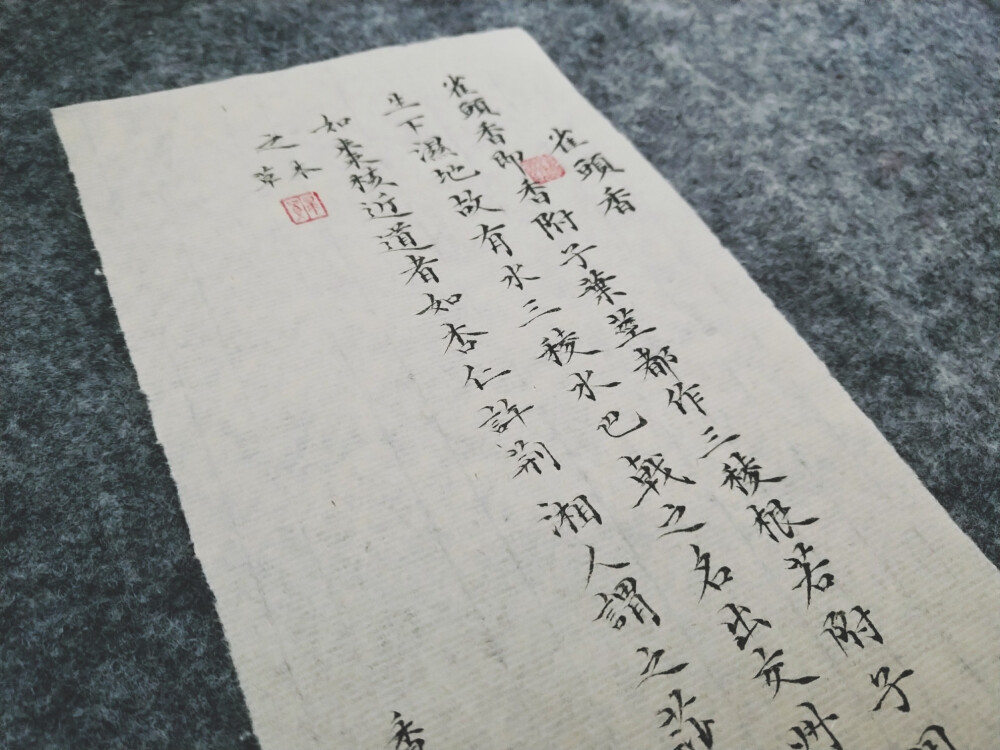 雀頭香
雀頭香即香附子葉莖都作三稜根若附子周
生下濕地故有水三稜水巴戟之名出交州
如棗核近道者如杏仁許荊湘人謂之莎
之木
草
香